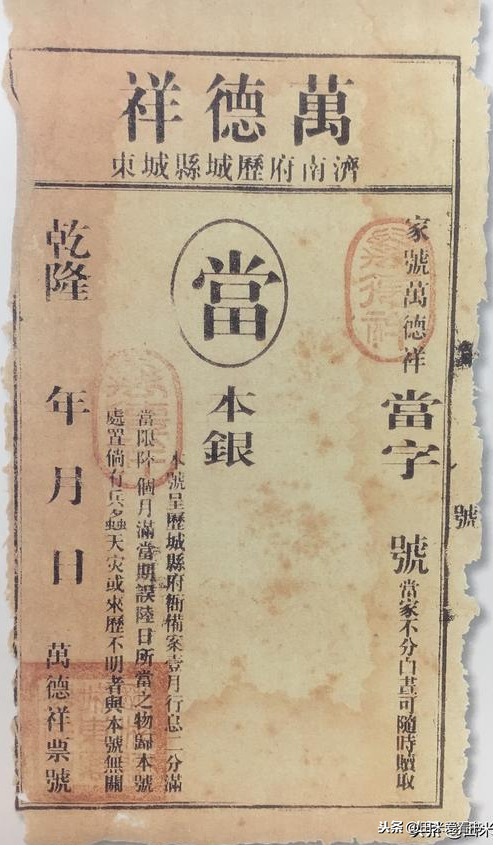 萬德祥
濟南府歷城縣城東
家號萬德祥
當字 號
當家不分白晝可隨時贖取
號
當
本銀
本號呈歷城縣府衙備案壹月行息二分滿
當限陸個月滿當期誤陸日所當之物歸本號
處置倘有兵蟲天灾或來歷不明者與本號無關
乾隆 年 月 日
萬德祥票號
萬德祥
头条 @田米爱猫